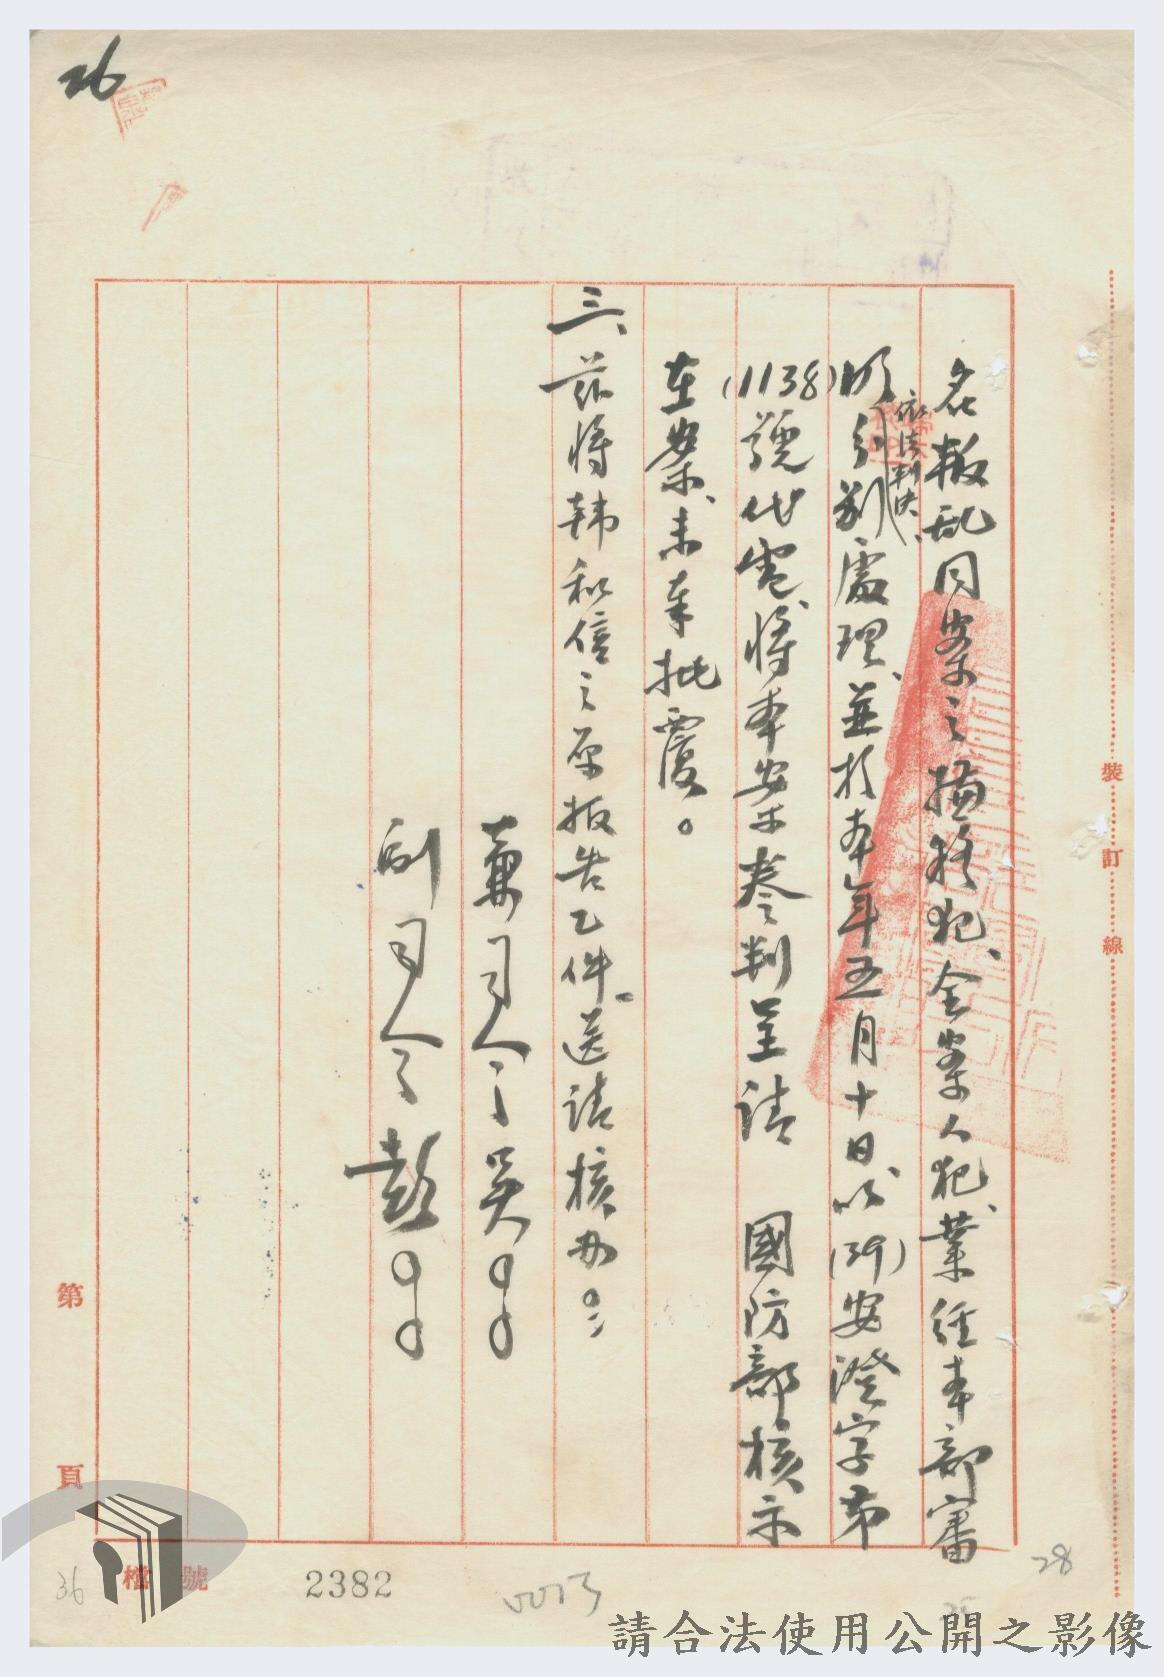 26
名叛亂同案之橋頭犯、全案人犯、業經本部審
明分別依法判决、處理、並於本年五月十日、以(39)安澄字第
(1138)號代電、將本案卷判呈請 國防部核示
在案、未奉批覆。
三、茲將韓和信之原报告乙件。送請核办。
兼司令吳
副司令彭
裝 訂 線
第 頁
檔 號
2382
0013
36
28
請合法使用公開之影像